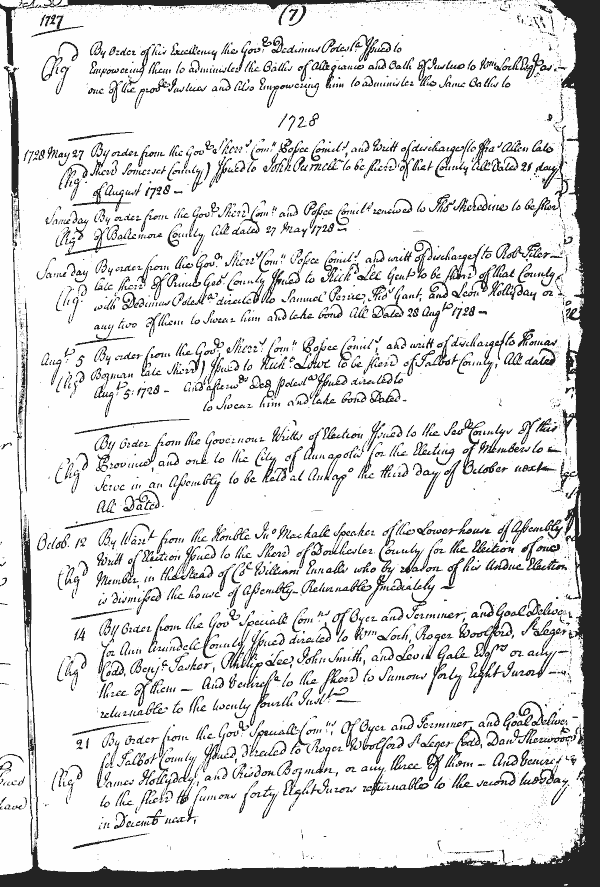 1727
(7)
Chgd By Order of his Excellency the Govr Dedimus Potesta Issued to
Empowering them to administer the Oaths of Allegiance and Oath of Justice to Wm Lock Esqr as
one of the provl Justices and Also Empowering him to administer the Same Oaths to
1728
1728 May 27 By order from the Govr Sherrs Comn Possee Comits, and Writt of discharge to Jno Allen late
Chgd Sherr Somerset County) Issued to John Purnell to be sherr of that County All Dated 21 day
of August 1728 —
Same day By order from the Govr Sherrs Comn and Possee Comits renewed to Thos Sheredine to be sher
Chgd of Baltemore County All dated 27 May 1728 —
Same day By order from the Govr Sherrs Comn Possee Comits, and writt of discharge to Robt Tiler —
Chgd late sherr of Prince Geos County Issued to Richd Lee Gent to be sherr of that County
with Dedimus Potests directed to Samuel Perrie, Thos Gant, and Leond Hollyday or
any two of them to Swear him and take bond All Dated 28 Augt 1728 —
Augt 5 By order from the Govr Sherrs Comn Possee Comits, and writt of discharge to Thomas
Chgd Bozman late Sherr) Issued to Nichs Lowe to be sherd of Talbot County, All dated
Augt 5: 1728 — And afterwds Ded potesta Issued directed to
to Swear him and take bond Dated —
By Order from the Governour Writts of Election Issued to the Sevl Countys of this
Chgd Province, and one to the City of Annapolis for the Electing of Members to —
Serve in an Assembly to be held at Annaps the third day of October next —
All Dated.
Octob. 12 By Warrt from the Honble Jno Mackall Speaker of the Lower house of Assembly
Writt of Election Issued to the Sherd of Dorchester County for the Election of one
Chgd Member in the stead of Col William Ennalls who by reason of his Undue Election
is dismissed the house of Assembly — Returnable Imediately —
14 By Order from the Govr Speciall Comns Of Oyer and Terminer, and Goal Delive
for Ann Arundell County Issued directed to Wm Lock, Roger Woolford, St Leger
Chgd Codd, Benja Tasker, Phillip Lee, John Smith, and Levin Gale Esqrs or any —
three of them — And Venires to the sherd to Sumons forty Eight Jurors —
returnable to the twenty fourth Inst —
21 By order from the Govr Speciall Comns, Of Oyer and Terminer, and Goal Delive
for Talbot County Issued, directed to Roger Woolford St Leger Codd, Danl Sherwood
Chgd James Hollyday, and Risdon Bozman, or any three of them — And Venires
to the sherd to Sumons forty Eight Jurors returnable to the second tuesday
in Decemb next,